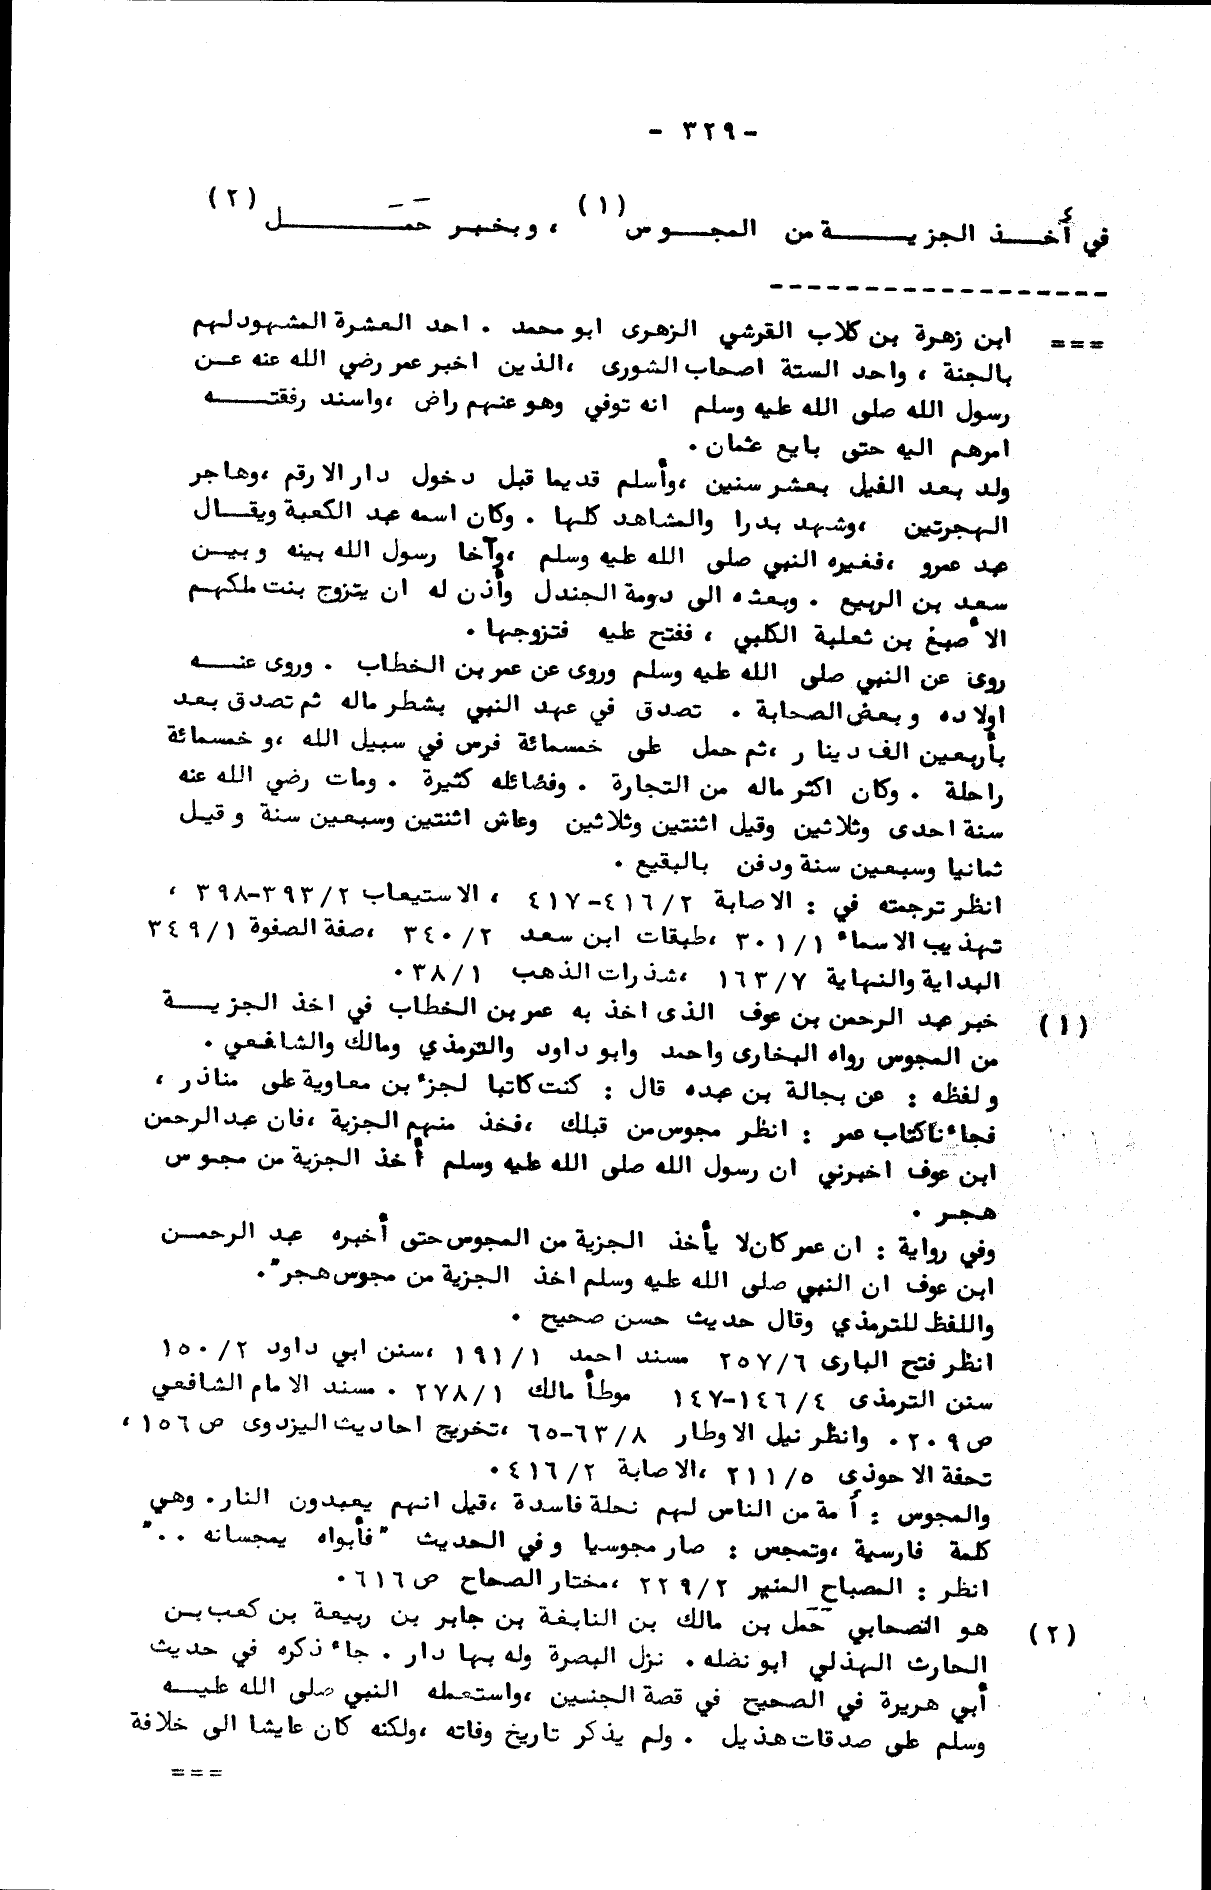 - ٣٢٩ -
في أخذ الجزية من المجوس (١) ، وبخبر حَمَل (٢)
=== ابن زهرة بن كلاب القرشي الزهرى ابو محمد . احد العشرة المشهود لهم
بالجنة ، واحد الستة اصحاب الشورى ، الذين اخبر عمر رضي الله عنه عن
رسول الله صلى الله عليه وسلم انه توفي وهو عنهم راض ، واسند رفقته
امرهم اليه حتى بايع عثمان .
ولد بعد الفيل بعشر سنين ، وأسلم قديما قبل دخول دار الارقم ، وهاجر
الهجرتين ، وشهد بدرا والمشاهد كلها . وكان اسمه عبد الكعبة ويقال
عبد عمرو ، فغيره النبي صلى الله عليه وسلم ، وآخا رسول الله بينه وبين
سعد بن الربيع . وبعثه الى دومة الجندل وأذن له ان يتزوج بنت ملكهم
الأصبغ بن ثعلبة الكلبي ، ففتح عليه فتزوجها .
روى عن النبي صلى الله عليه وسلم وروى عن عمر بن الخطاب . وروى عنه
اولاده وبعض الصحابة . تصدق في عهد النبي بشطر ماله ثم تصدق بعد
بأربعين الف دينار ، ثم حمل على خمسمائة فرس في سبيل الله ، وخمسمائة
راحلة . وكان اكثر ماله من التجارة . وفضائله كثيرة . ومات رضي الله عنه
سنة احدى وثلاثين وقيل اثنتين وثلاثين وعاش اثنتين وسبعين سنة وقيل
ثمانيا وسبعين سنة ودفن بالبقيع .
انظر ترجمته في : الاصابة ٤١٦/٢-٤١٧ ، الاستيعاب ٣٩٣/٢-٣٩٨ ،
تهذيب الاسماء ٣٠١/١ ، طبقات ابن سعد ٣٤٠/٢ ، صفة الصفوة ٣٤٩/١
البداية والنهاية ١٦٣/٧ ، شذرات الذهب ٣٨/١ .
(١) خبر عبد الرحمن بن عوف الذى اخذ به عمر بن الخطاب في اخذ الجزية
من المجوس رواه البخارى واحمد وابو داود والترمذي ومالك والشافعي .
ولفظه : عن بجالة بن عبده قال : كنت كاتبا لجزء بن معاوية على مناذر ،
فجاءنا كتاب عمر : انظر مجوس من قبلك ، فخذ منهم الجزية ، فان عبد الرحمن
ابن عوف اخبرني ان رسول الله صلى الله عليه وسلم أخذ الجزية من مجوس
هجر .
وفي رواية : ان عمر كان لا يأخذ الجزية من المجوس حتى أخبره عبد الرحمن
ابن عوف ان النبي صلى الله عليه وسلم اخذ الجزية من مجوس هجر" .
واللفظ للترمذي وقال حديث حسن صحيح .
انظر فتح البارى ٢٥٧/٦ مسند احمد ١٩١/١ ، سنن ابي داود ١٥٠/٢
سنن الترمذى ١٤٦/٤-١٤٧ موطأ مالك ٢٧٨/١ . مسند الامام الشافعي
ص ٢٠٩ . وانظر نيل الاوطار ٦٣/٨-٦٥ ، تخريج احاديث اليزدوى ص ١٥٦ ،
تحفة الاحوذى ٢١١/٥ ، الاصابة ٤١٦/٢ .
والمجوس : أمة من الناس لهم نحلة فاسدة ، قيل انهم يعبدون النار . وهي
كلمة فارسية ، وتمجس : صار مجوسيا وفي الحديث "فأبواه يمجسانه .."
انظر : المصباح المنير ٢٢٩/٢ ، مختار الصحاح ص ٦١٦ .
(٢) هو الصحابي حَمَل بن مالك بن النابغة بن جابر بن ربيعة بن كعب بن
الحارث الهذلي ابو نضله . نزل البصرة وله بها دار . جاء ذكره في حديث
أبي هريرة في الصحيح في قصة الجنين ، واستعمله النبي صلى الله عليه
وسلم على صدقات هذيل . ولم يذكر تاريخ وفاته ، ولكنه كان عايشا الى خلافة
===